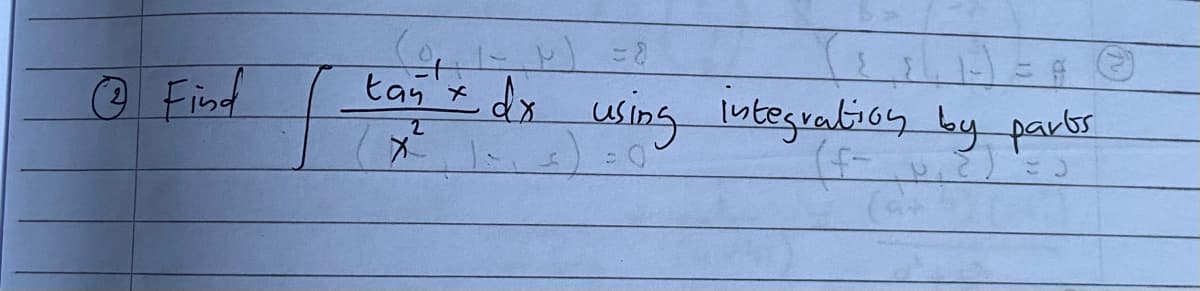 ② Find ∫ tan⁻¹x / x² dx using integration by parts